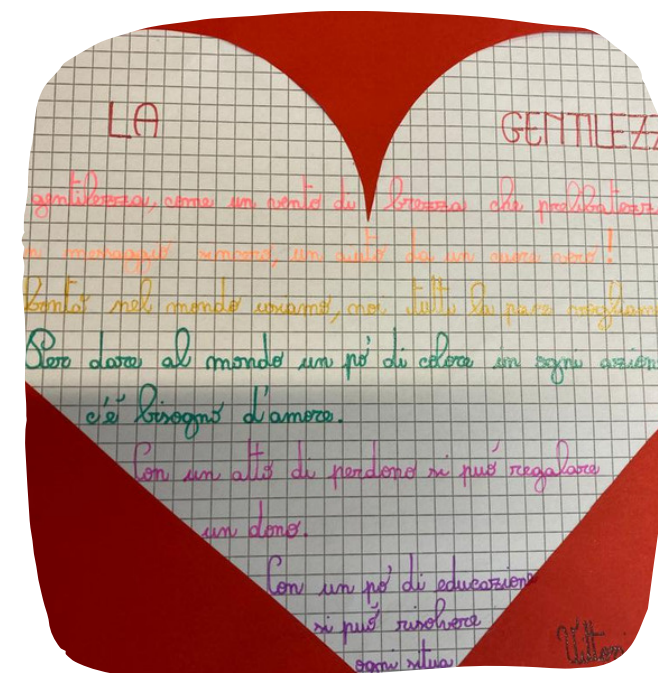 LA GENTILEZZ
gentilezza, come un vento di brezza che prelibatezz
un messaggio sincero, un aiuto da un cuore vero!
Bontà nel mondo usiamo, noi tutti la pace vogliam
Per dare al mondo un pó di colore in ogni azion
c'é bisogno d'amore.
Con un atto di perdono si puó regalare
un dono.
Con un pó di educazione
si puó risolvere
ogni situa